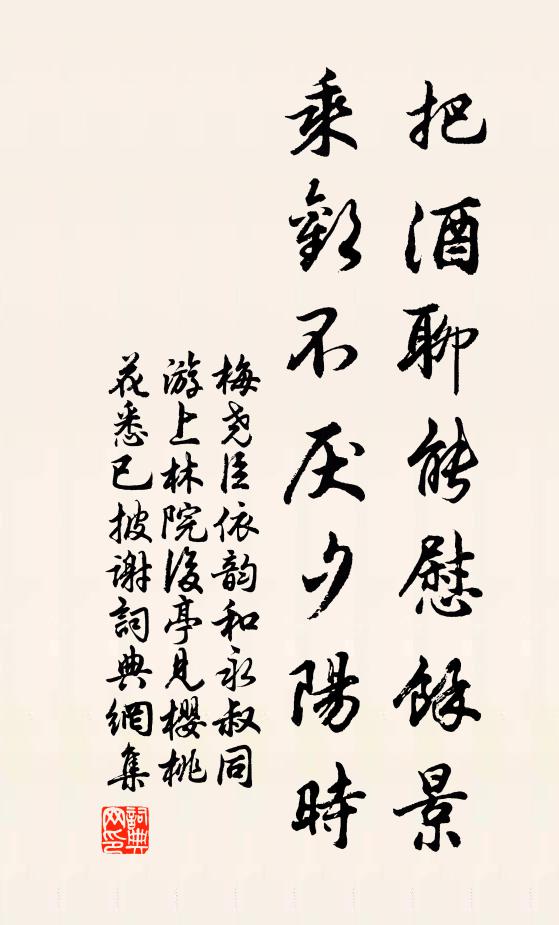 把酒聊能慰餘景
乘歡不厌夕陽時
梅尧臣依韵和永叔同
游上林院後亭見櫻桃
花悉已披謝詞典網集
詞典网印